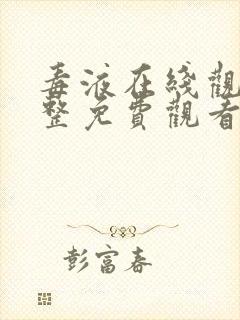 毒液在线觀
整免費觀看
彭富春